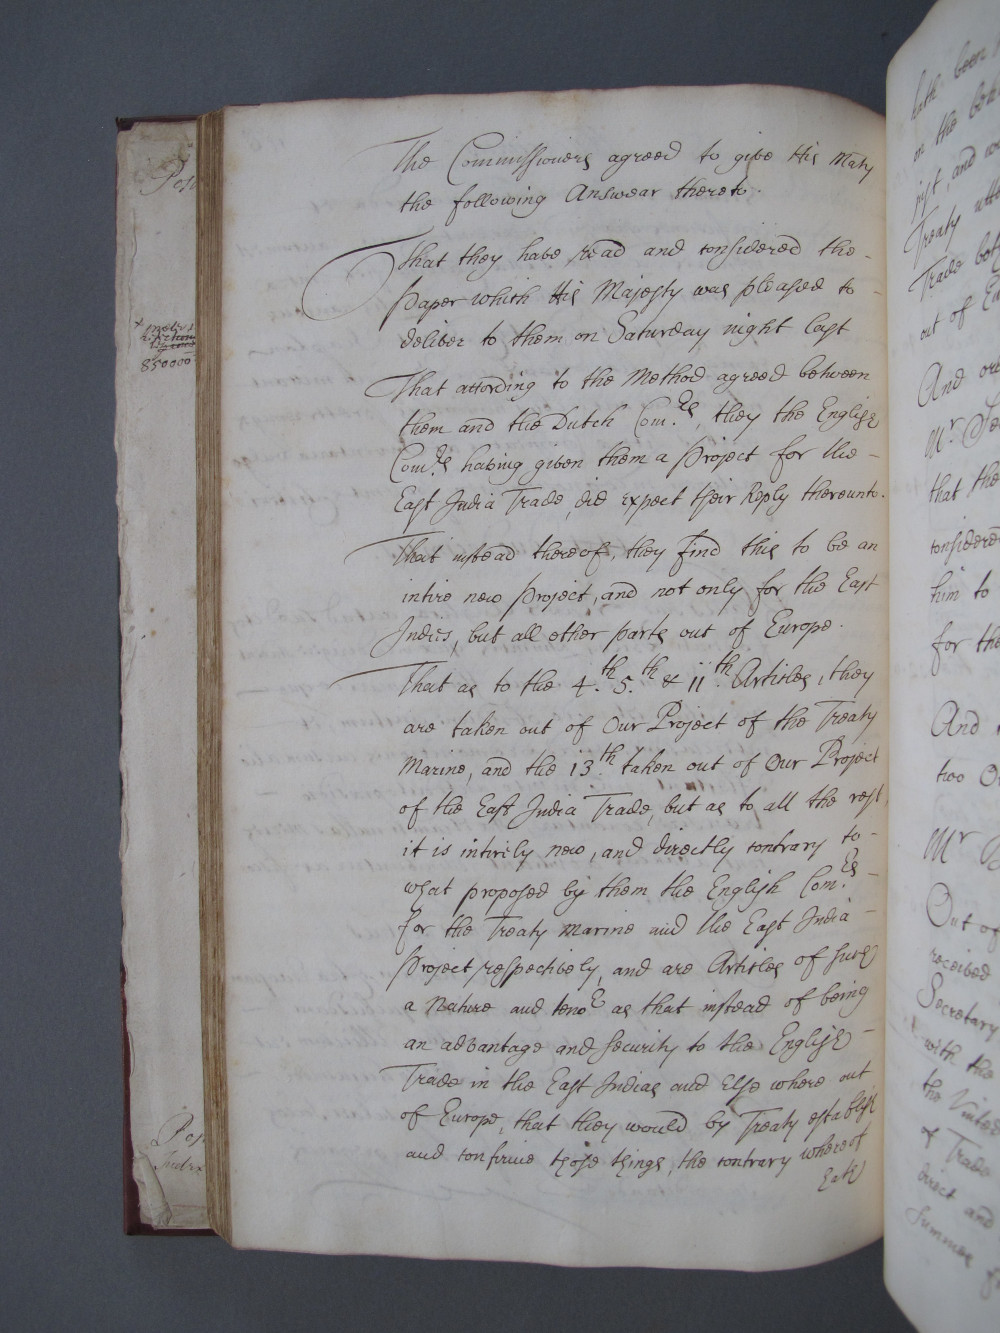 The Commissioners agreed to give His Maty
the following Answear thereto.
That they have read and considered the
paper which His Majesty was pleased to
deliver to them on Saturday night last
That according to the Method agreed between
them and the Dutch Com:rs, they the English
Com:rs having given them a Project for the
East India Trade, did expect their Reply thereunto.
That instead thereof, they find this to be an
intire new Project, and not only for the East
Indies, but all other parts out of Europe.
That as to the 4.th 5.th & 11.th Articles, they
are taken out of Our Project of the Treaty
Marine, and the 13.th taken out of Our Project
of the East India Trade, but as to all the rest,
it is intirely new, and directly contrary to
what proposed by them the English Com:rs
for the Treaty Marine and the East India
Project respectively, and are Articles of such
a Nature and tenor as that instead of being
an advantage and security to the English
Trade in the East Indias and Else where out
of Europe, that they would by Treaty establish
and confirme those things, the contrary whereof
hath
850000
hath been
on the
just, and
Treaty
Trade both
out of
And
Mr
that the
considered
him to
for the
And
two
Mr
Out of
received
Secretary
with the
the United
of Trade
direct and
Summes